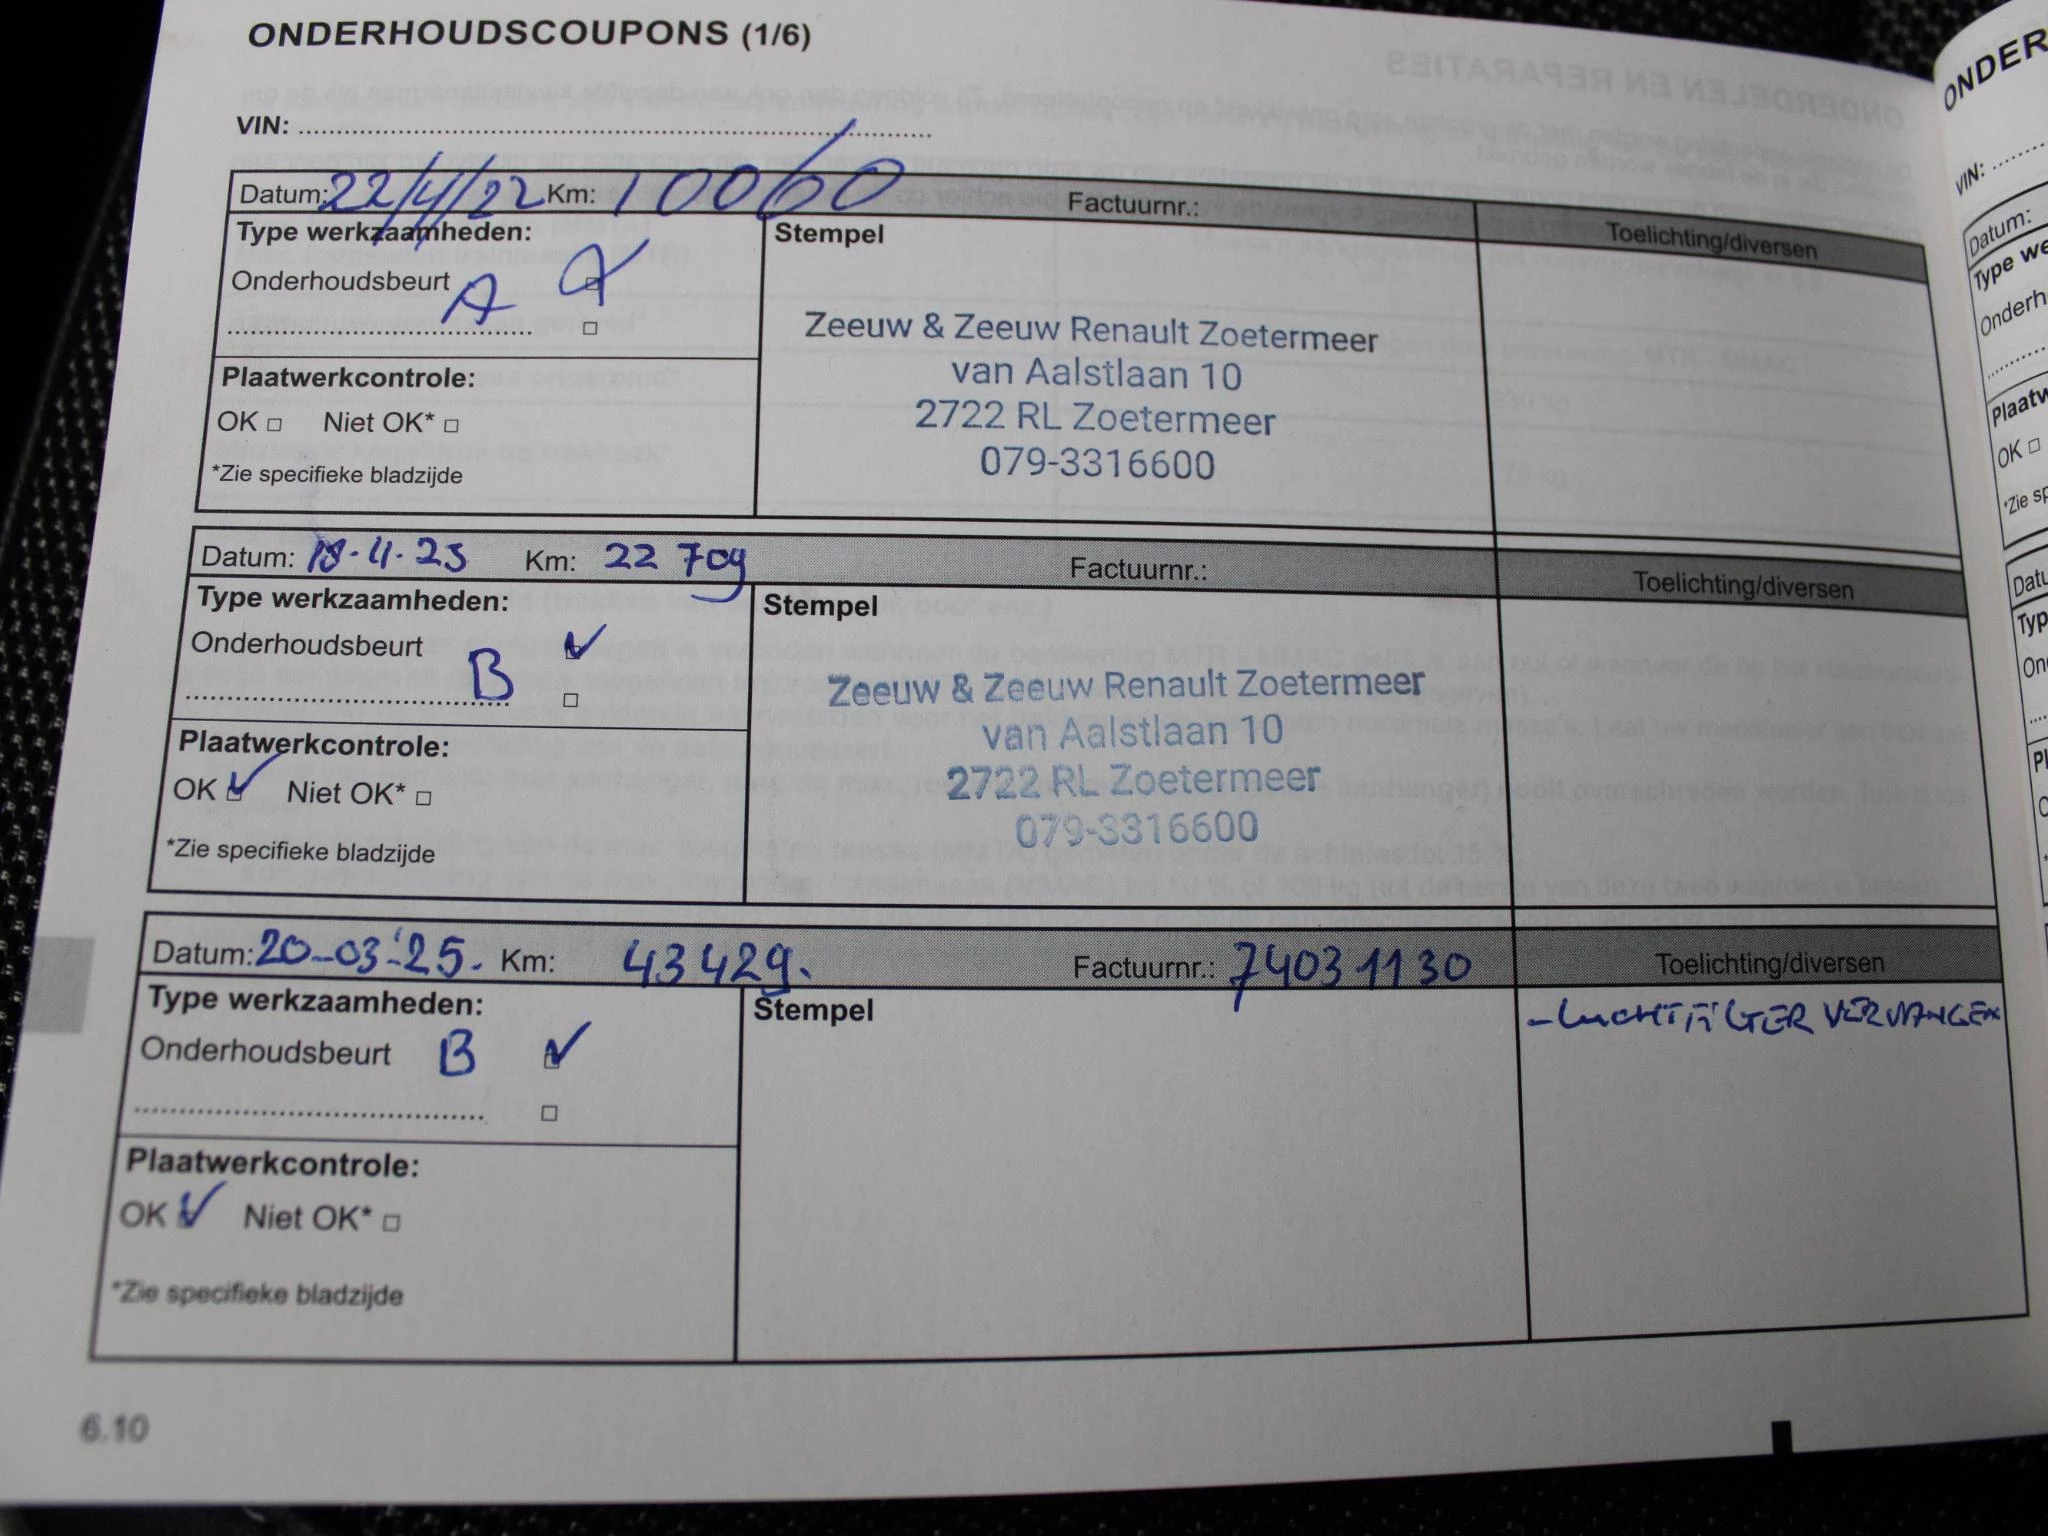 ONDERHOUDSCOUPONS (1/6)
VIN:
Datum: 22/4/22 Km: 10060 Factuurnr.:
Type werkzaamheden: Stempel Toelichting/diversen
Onderhoudsbeurt A
Zeeuw & Zeeuw Renault Zoetermeer
van Aalstlaan 10
2722 RL Zoetermeer
079-3316600
Plaatwerkcontrole:
OK Niet OK*
*Zie specifieke bladzijde
Datum: 18-4-23 Km: 22 709 Factuurnr.: Toelichting/diversen
Type werkzaamheden: Stempel
Onderhoudsbeurt B
Zeeuw & Zeeuw Renault Zoetermeer
van Aalstlaan 10
2722 RL Zoetermeer
079-3316600
Plaatwerkcontrole:
OK Niet OK*
*Zie specifieke bladzijde
Datum: 20-03-'25. Km: 43429. Factuurnr.: 74031130 Toelichting/diversen
Type werkzaamheden: Stempel
- LUCHTFILTER VERVANGEN
Onderhoudsbeurt B
Plaatwerkcontrole:
OK Niet OK*
*Zie specifieke bladzijde
6.10
ONDER
VIN:
Datum:
Type we
Onderh
Plaatw
OK
*Zie sp